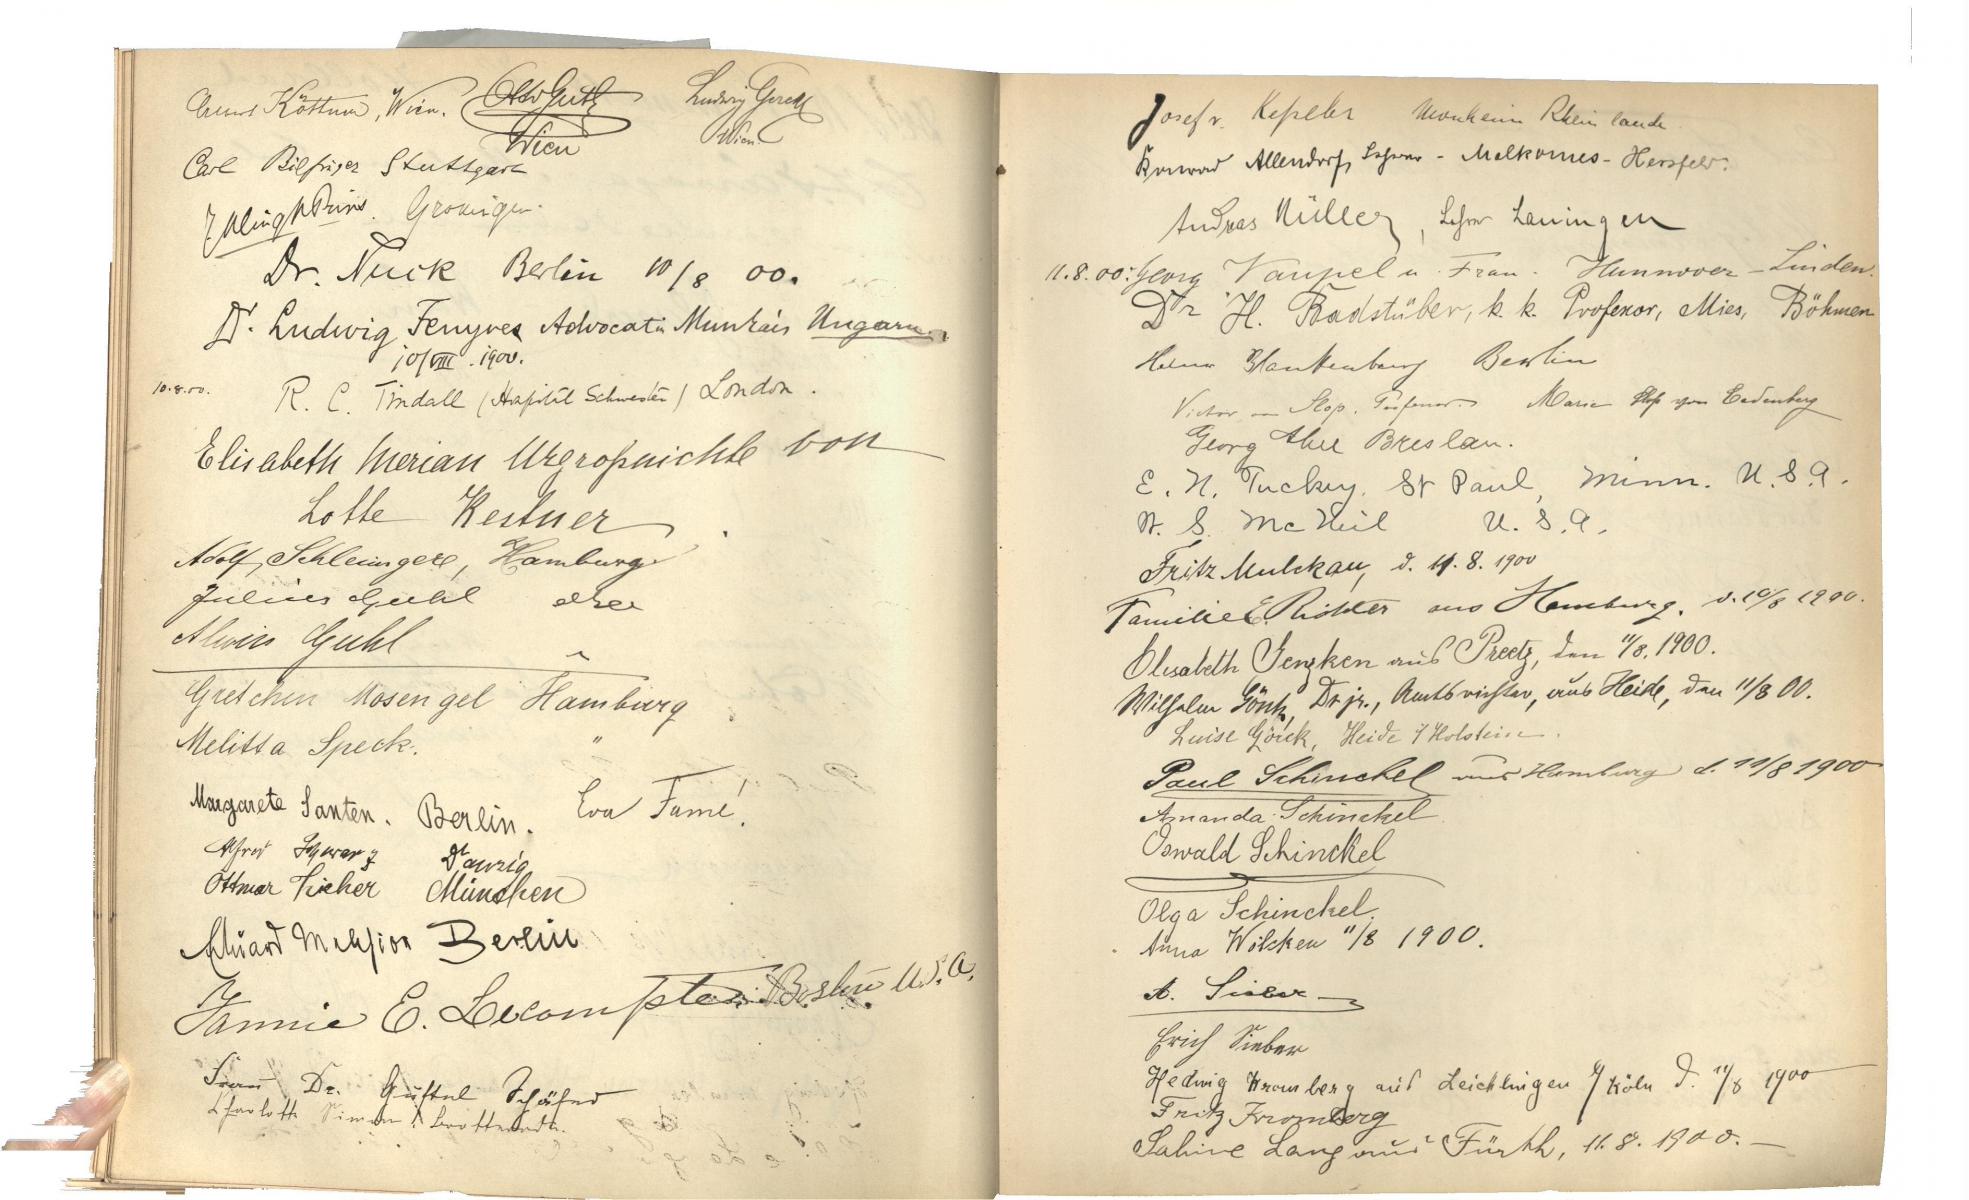 Köttner, Wien. Otto Gutz Ludwig
Wien Wien.
Carl Bilfinger Stuttgart
Groningen.
Dr. Nuck Berlin 10/8 00.
Dr. Ludwig Fenyves Advocat in Munkács Ungarn.
10/VIII. 1900.
10.8.00. R. C. Tindall (Hospital Schwester) London.
Elisabeth Merian Urgroßnichte von
Lotte Kestner
Adolf Schleungere, Hamburg
Julius Guhl
Alwin Guhl
Gretchen Mosengel Hamburg
Melitta Speck. "
Margarete Santen. Berlin. Eva Famé!
Alfred Schwarz Danzig
Ottmar München
Eduard Berlin
Fannie E. Lecompte Boston U.S.A.
Frau Dr. Gustel Schäfer
Charlotte Simon
Josef v. Kepeler Monheim Rheinlande.
Konrad Allendorf, Lehrer - Melkomes - Hersfeld.
Andreas Müller, Lehrer Lauingen
11.8.00. Georg Vaupel u. Frau. Hannover - Linden.
Dr H. Badstüber, k. k. Professor, Mies, Böhmen
Blankenburg Berlin
Victor Professor. Marie
Georg Breslau.
E. N. Tuckey. St Paul, Minn. U. S. A.
W. S. McNeil U. S. A.
Fritz Mulckau, d. 11. 8. 1900
Familie E. Richter aus Hamburg. d. 10/8 1900.
Elisabeth Genzken aus Preetz, den 11/8. 1900.
Wilhelm Görck, Dr. jr., Amtsrichter, aus Heide, den 11/8 00.
Luise Görck, Heide i/Holstein.
Paul Schinckel aus Hamburg d. 11/8 1900
Amanda Schinckel
Oswald Schinckel
Olga Schinckel.
Anna Wölcken 11/8 1900.
A. Sieber
Erich Sieber
Hedwig Kromberg aus Leichlingen b/ Köln d. 11/8 1900
Fritz Kromberg
Sabine Lang aus Fürth, 11. 8. 1900.